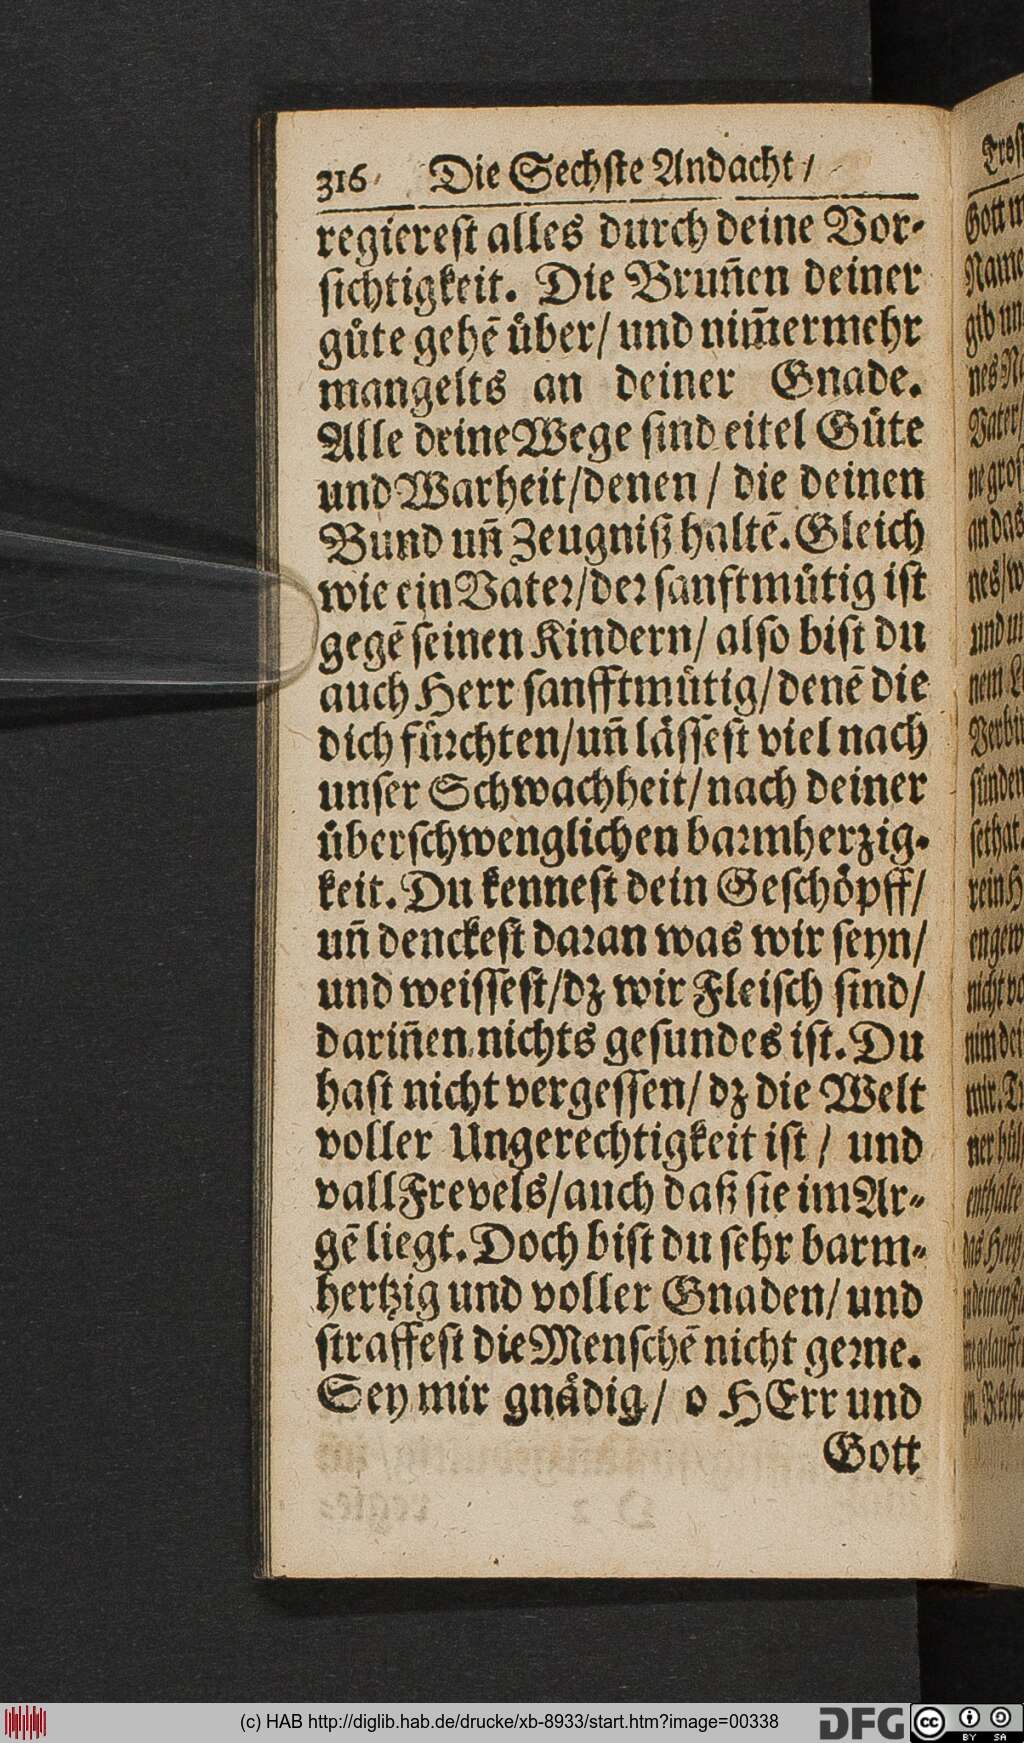 316 Die Sechste Andacht /
regierest alles durch deine Vor-
sichtigkeit. Die Brun̄en deiner
gůte gehē ůber/ und nim̄ermehr
mangelts an deiner Gnade.
Alle deine Wege sind eitel Gůte
und Warheit/denen / die deinen
Bund un̄ Zeugniß haltē. Gleich
wie ein Vater/der sanftmůtig ist
gegē seinen Kindern/ also bist du
auch Herr sanfftmůtig/ denē die
dich fůrchten/un̄ låssest viel nach
unser Schwachheit/ nach deiner
ůberschwenglichen barmherzig-
keit. Du kennest dein Geschöpff/
un̄ denckest daran was wir seyn/
und weissest/dz wir Fleisch sind/
darin̄en nichts gesundes ist. Du
hast nicht vergessen/ dz die Welt
voller Ungerechtigkeit ist / und
vall Frevels/auch daß sie im Ar-
gē liegt. Doch bist du sehr barm-
hertzig und voller Gnaden/ und
straffest die Menschē nicht gerne.
Sey mir gnådig/ o HErr und
Gott
(c) HAB http://diglib.hab.de/drucke/xb-8933/start.htm?image=00338
DFG
cc BY SA